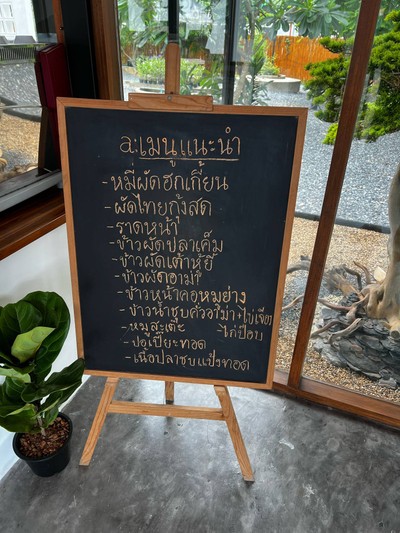 เมนูแนะนำ
-หมี่ผัดฮกเกี้ยน
-ผัดไทยกุ้งสด
-ราดหน้า
-ข้าวผัดปลาเค็ม
-ข้าวผัดเต้าหู้ยี้
-ข้าวผัดอาม่า
-ข้าวหน้าคอหมูย่าง
-ข้าวน้ำชุบคั่วอใข่า+ไข่เจียว
-หมูสะเต๊ะ ไก่ป๊อบ
-ปอเปี๊ยะทอด
-เนื้อปลาชุบแป้งทอด